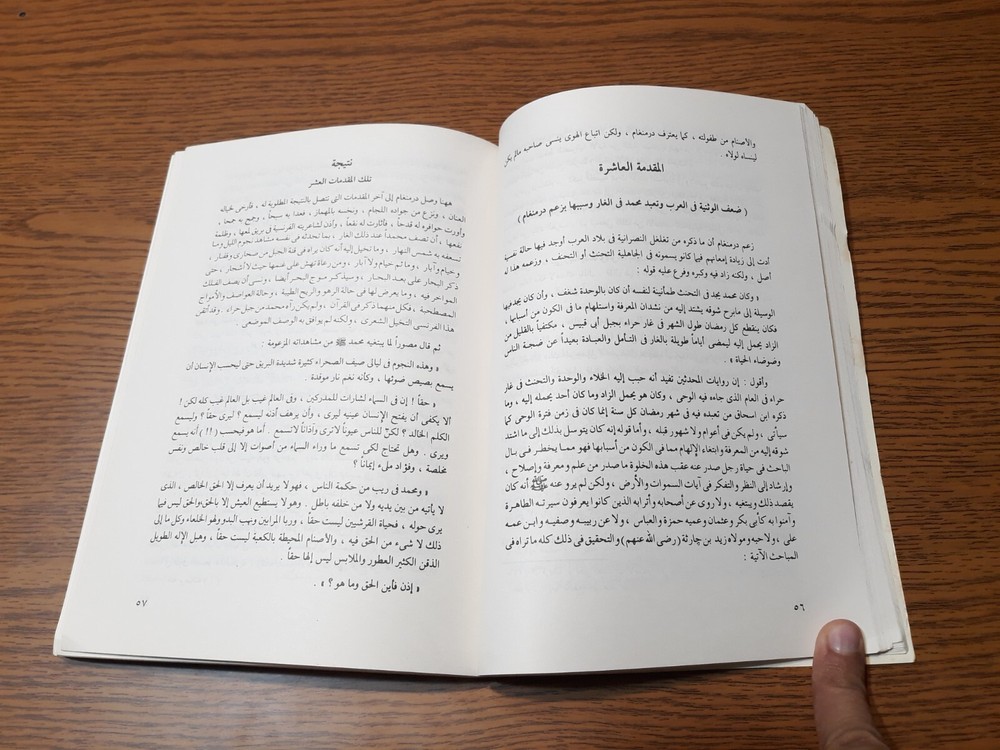 والأصنام من طفولته ، كما يعترف درمنغام ، ولكن اتباع الهوى ينسى صاحبه مالم يكن
لينساه لولاه .
المقدمة العاشرة
( ضعف الوثنية فى العرب وتعبد محمد فى الغار وسببها بزعم درمنغام )
زعم درمنغام أن ما ذكره من تغلغل النصرانية فى بلاد العرب أوجد فيها حالة نفسية
أدت إلى زيادة إمعانهم فيما كانو يسمونه فى الجاهلية التحنث أو التحنف ، وزعمه هذا له
أصل ، ولكنه زاد فيه وكبره وفرع عليه قوله :
« وكان محمد يجد فى التحنث طمأنينة لنفسه أن كان بالوحدة شغف ، وأن كان يجد فيها
الوسيلة إلى مابرح شوقه يشتد إليه من نشدان المعرفة واستلهام ما فى الكون من أسبابها ،
فكان ينقطع كل رمضان طول الشهر فى غار حراء بجبل أبى قبيس ، مكتفياً بالقليل من
الزاد يحمل إليه ليمضى أياماً طويلة بالغار فى التأمل والعبادة بعيداً عن ضجة الناس
وضوضاء الحياة » .
وأقول : إن روايات المحدثين تفيد أنه حبب إليه الخلاء والوحدة والتحنث فى غار
حراء فى العام الذى جاءه فيه الوحى ، وكان هو يحمل الزاد وما كان أحد يحمله إليه ، وما
ذكره ابن اسحاق من تعبده فيه فى شهر رمضان كل سنة إنما كان فى زمن فترة الوحى كما
سيأتى ، ولم يكن فى أعوام ولا شهور قبله ، وأما قوله إنه كان يتوسل بذلك إلى ما اشتد
شوقه إليه من المعرفة وابتغاء الإلهام مما فى الكون من أسبابها فهو مما يخطر فى بال
الباحث فى حياة رجل صدر عنه عقب هذه الخلوة ما صدر من علم ومعرفة وإصلاح ،
وإرشاد إلى النظر والتفكر فى آيات السموات والأرض ، ولكن لم يرو عنه ﷺ أنه كان
يقصد ذلك ويبتغيه ، ولا روى عن أصحابه وأترابه الذين كانوا يعرفون سيرته الطاهرة
وآمنوا به كأبى بكر وعثمان وعميه حمزة والعباس ، ولا عن ربيبه وصفيه وابن عمه
على ، ولا حبه ومولاه زيد بن حارثة (رضى الله عنهم) والتحقيق فى ذلك كله ما تراه فى
المباحث الآتية :
٥٦
نتيجة
تلك المقدمات العشر
ههنا وصل درمنغام إلى آخر المقدمات التى تتصل بالنتيجة المطلوبة له ، فأرخى لخياله
العنان ، ونزع من جواده اللجام ، ونخسه بالمهماز ، فعدا به سبحاً ، وجمح به جمحاً ،
وأورت حوافره له قدحاً ، فأثارت له نقعاً ، وأذن لشاعريته الفرنسية فى بريق لمعها ، وظلمة
نقعها ، أن تصف محمداً عند ذلك الغار ، بما تحدثه فى نفسه مشاهد نجوم الليل وما
تسعفه به شمس النهار ، وما تخيل إليه أنه كان يراه فى قنة الجبل من صحارى وقفار ،
وخيام وآبار ، وما ثم خيام ولا آبار ، ومن رعاة تهش على غنمها حيث لا أشجار ، حتى
ذكر البحار على بعد البحار ، وسيذكر موج البحر أيضا ، ونسى أن يصف الفلك
المواخر فيه ، وما يعرض لها فى حالة الرهو والريح الطيبة ، وحالة العواصف والأمواج
المصطخبة ، فكل منهما ذكر فى القرآن ، ولم يكن رآه محمد من جبل حراء . وقد أتقن
هذا الفرنسى التخيل الشعرى ، ولكنه لم يوافق به الوصف الموضعى .
ثم قال مصوراً لما يبتغيه محمد ﷺ من مشاهداته المزعومة :
« وهذه النجوم فى ليالى صيف الصحراء كثيرة شديدة البريق حتى ليحسب الإنسان أن
يسمع بصيص ضوئها ، وكأنه نغم نار موقدة .
« حقاً ! إن فى السماء لشارات للمدركين ، وفى العالم غيب بل العالم غيب كله لكن !
ألا يكفى أن يفتح الإنسان عينيه ليرى ، وأن يرهف أذنه ليسمع ؟ ليرى حقاً ؟ وليسمع
الكلم الخالد ؟ لكنّ للناس عيوناً لاترى وآذاناً لاتسمع . أما هو فيحسب (!!) أنه يسمع
ويرى . وهل تحتاج لكى تسمع ما وراء السماء من أصوات إلا إلى قلب خالص ونفس
مخلصة ، وفؤاد ملىء إيماناً ؟
« ومحمد فى ريب من حكمة الناس ، فهو لا يريد أن يعرف إلا الحق الخالص ، الذى
لا يأتيه من بين يديه ولا من خلفه باطل . وهو لا يستطيع العيش إلا بالحق والحق ليس فيما
يرى حوله ، فحياة القرشيين ليست حقاً ، وربا المرابين ونهب البدو ولهو الخلعاء وكل ما إلى
ذلك لا شىء من الحق فيه ، والأصنام المحيطة بالكعبة ليست حقاً ، وهبل الإله الطويل
الذقن الكثير العطور والملابس ليس إلها حقاً .
« إذن فأين الحق وما هو ؟ » .
٥٧